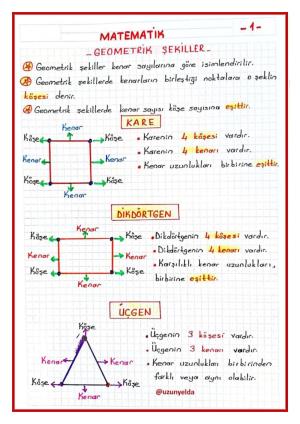 MATEMATİK
-1-
- GEOMETRİK ŞEKİLLER -
Geometrik şekiller kenar sayılarına göre isimlendirilir.
Geometrik şekillerde kenarların birleştiği noktalara o şeklin
köşesi denir.
Geometrik şekillerde kenar sayısı köşe sayısına eşittir.
KARE
Kenar
Köşe Köşe
Kenar Kenar
Köşe Köşe
Kenar
• Karenin 4 köşesi vardır.
• Karenin 4 kenarı vardır.
• Kenar uzunlukları birbirine eşittir.
DİKDÖRTGEN
Kenar
Köşe Köşe
Kenar Kenar
Köşe Köşe
Kenar
• Dikdörtgenin 4 köşesi vardır.
• Dikdörtgenin 4 kenarı vardır.
• Karşılıklı kenar uzunlukları,
birbirine eşittir.
ÜÇGEN
Köşe
Kenar Kenar
Köşe Köşe
Kenar
• Üçgenin 3 köşesi vardır.
• Üçgenin 3 kenarı vardır.
• Kenar uzunlukları birbirinden
farklı veya aynı olabilir.
@uzunyelda